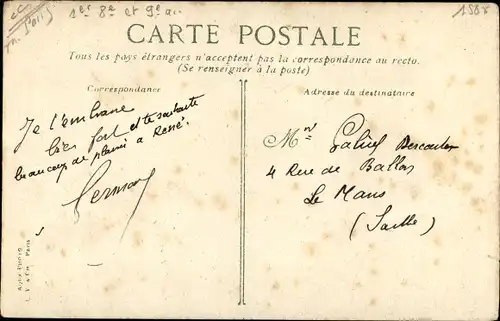 1er 8e et 9e a.
CARTE POSTALE
Tous les pays étrangers n'acceptent pas la correspondance au recto.
(Se renseigner à la poste)
Correspondance
Adresse du destinataire
Je t'embrasse
bien fort et te souhaite
beaucoup de plaisir à
Mr
4 Rue de Ballon
Le Mans
(Sarthe)